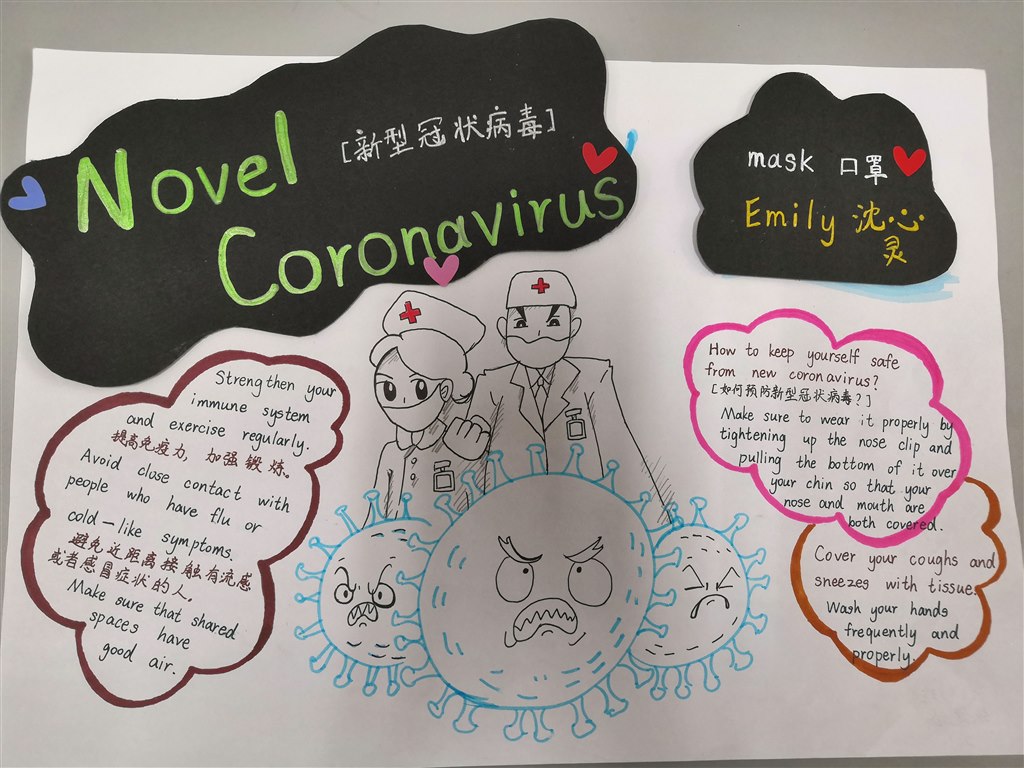 Novel
[新型冠状病毒]
Coronavirus
mask 口罩
Emily 沈心
灵
Strengthen your
immune system
and exercise regularly.
提高免疫力，加强锻炼。
Avoid close contact with
people who have flu or
cold-like symptoms.
避免近距离接触有流感
或者感冒症状的人.
Make sure that shared
spaces have
good air.
How to keep yourself safe
from new coronavirus?
[如何预防新型冠状病毒？]
Make sure to wear it properly by
tightening up the nose clip and
pulling the bottom of it over
your chin so that your
nose and mouth are
both covered.
Cover your coughs and
sneezes with tissue.
Wash your hands
frequently and
properly.